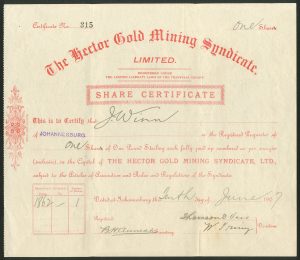 Certificate No. 315 One Share
The Hector Gold Mining Syndicate,
LIMITED.
REGISTERED UNDER
THE LIMITED LIABILITY LAWS OF THE TRANSVAAL COLONY
SHARE CERTIFICATE
This is to Certify that J. Winn
of JOHANNESBURG is the Registered Proprietor of
One Share of One Pound Sterling each fully paid up numbered as per margin
(inclusive), in the Capital of THE HECTOR GOLD MINING SYNDICATE, LTD.,
subject to the Articles of Association and Rules and Regulations of the Syndicate.
1862 1
Dated at Johannesburg this Tenth day of June 1907
Registered
Secretary
Directors